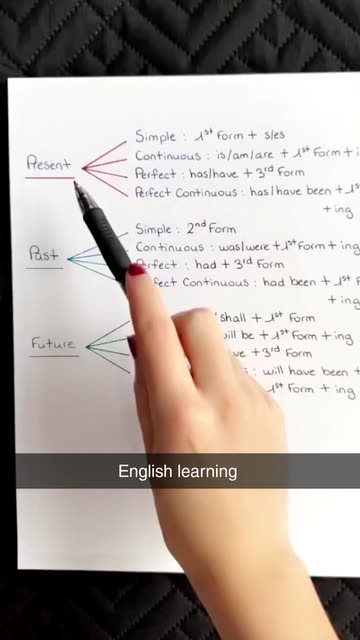 Present
Simple : 1st Form + s/es
Continuous : is/am/are + 1st Form +
Perfect : has/have + 3rd Form
Perfect Continuous : has/have been +
+ing
Past
Simple : 2nd Form
Continuous : was/were +1st Form + ing
Perfect : had + 3rd Form
Continuous : had been +
+ing
Future
/shall + 1st Form
will be + 1st Form + ing
+ 3rd Form
: will have been +
1st Form + ing
English learning